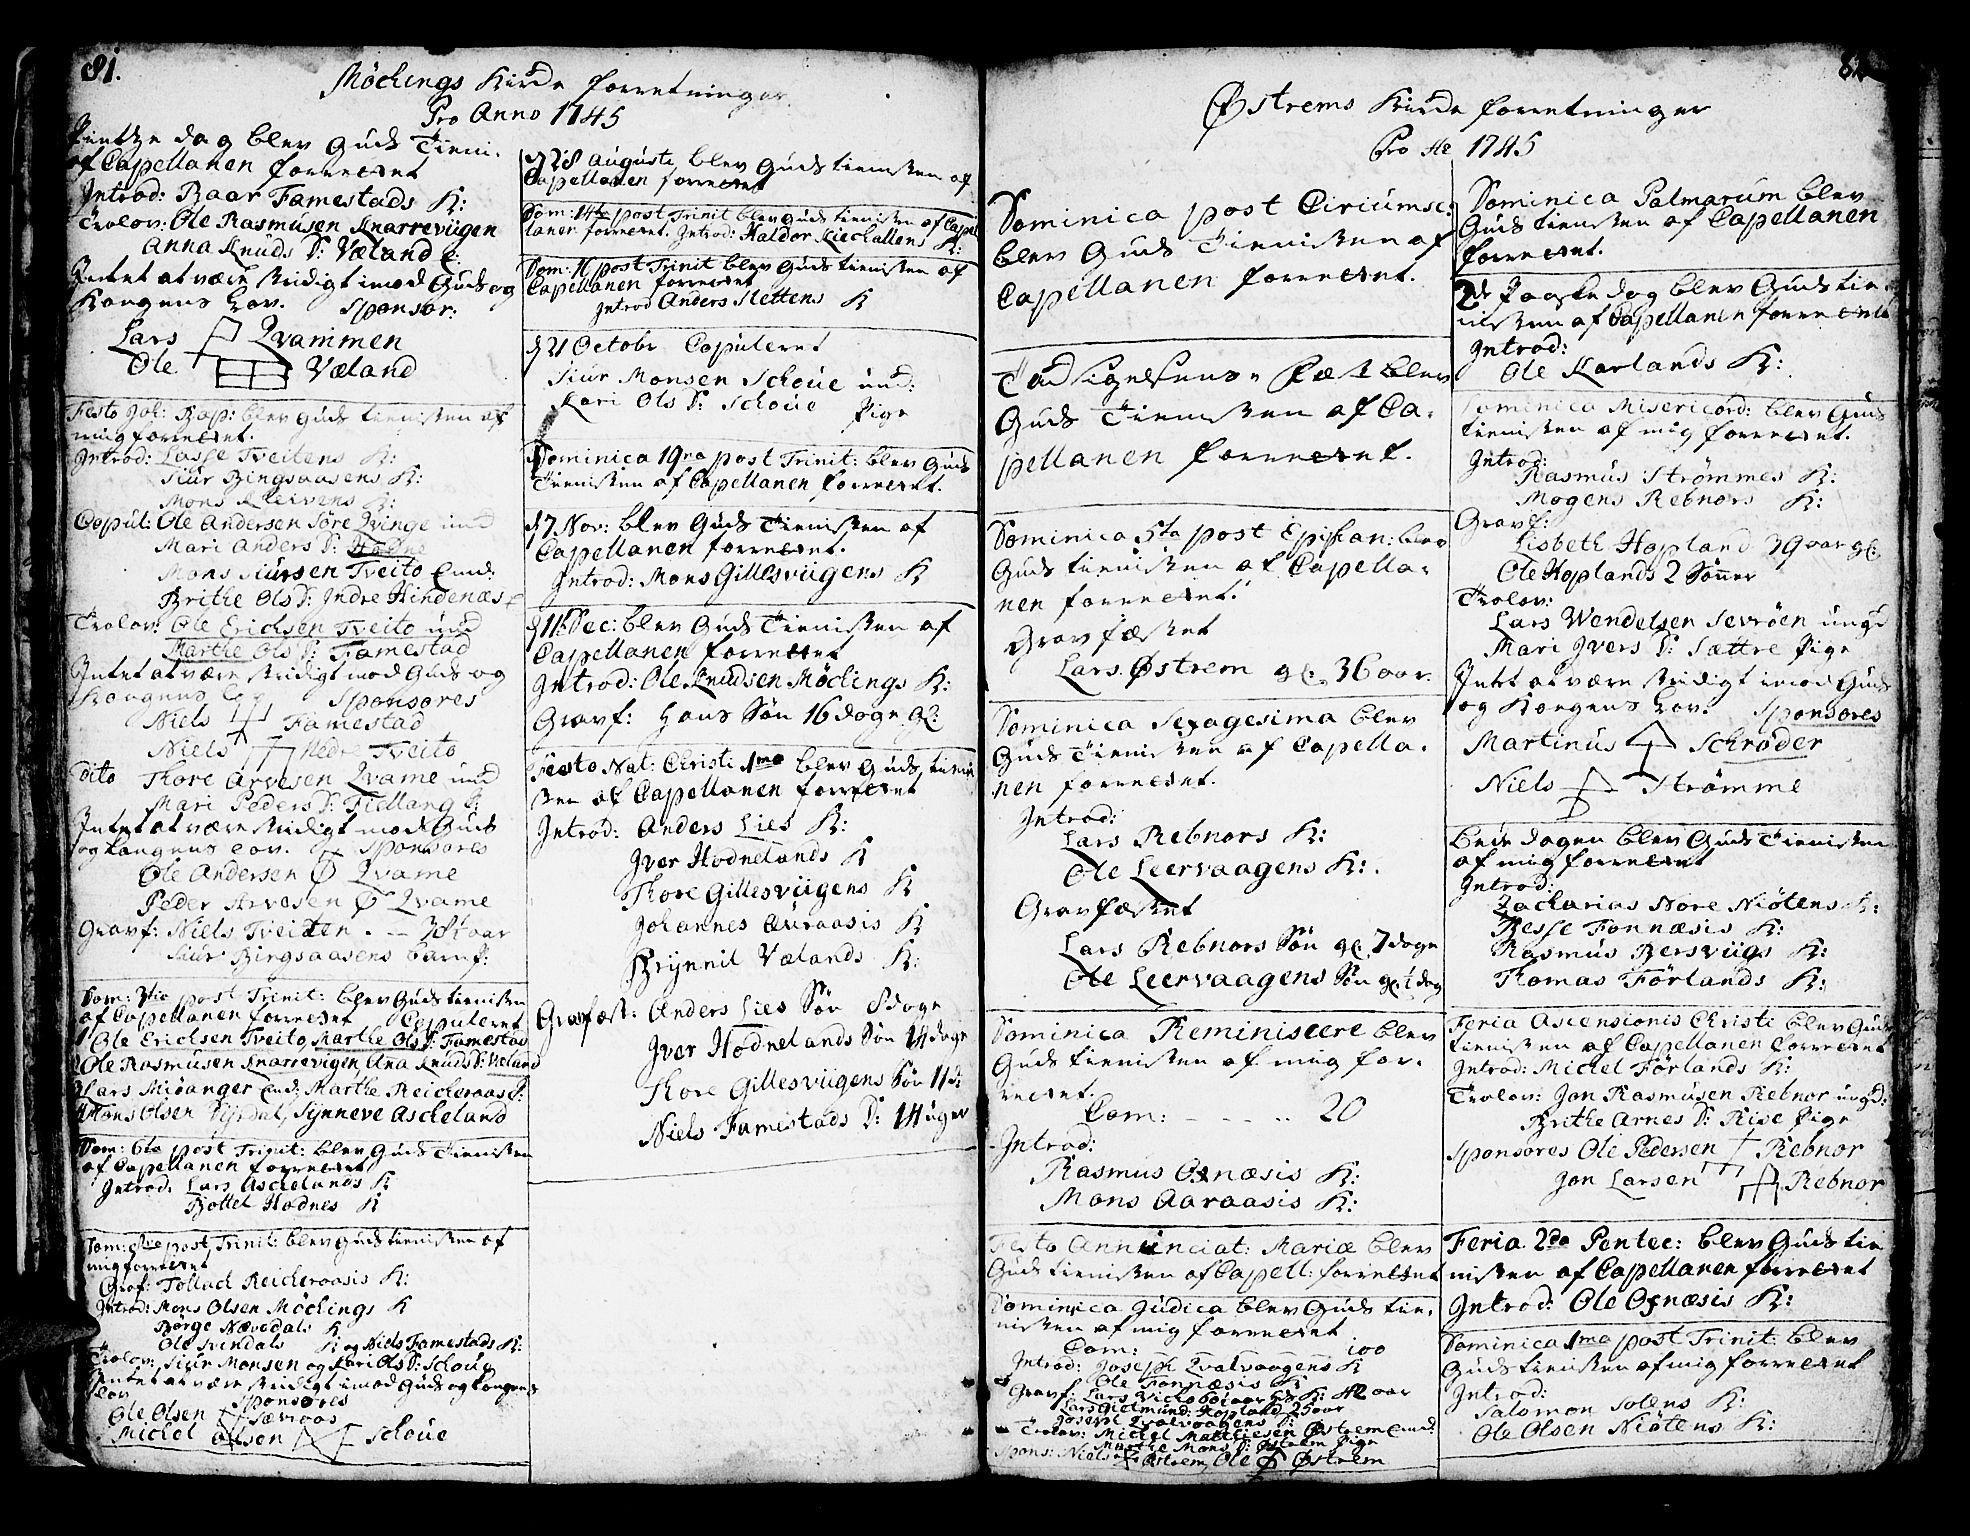 81.
Möckings Kirke forretninger
Pro Anno 1745
Pintze dag blev Guds Tieni.
af Capellanen forrettet
Introd: Baar Famestads K:
Trolov: Ole Rasmusen Knarreviigen
Anna Knuds D: Væland E:
Intet at være stridigt imod Guds og
Kongens Lov. Sponsor:
Lars Qvammen
Ole Væland
Festo Joh: Bap: blev Guds tienisten af
mig forrettet.
Introd: Lasse Tveitens K:
Siur Bingsaasens K:
Mons Kleivens K:
Copul: Ole Andersen Söre Qvinge und
Mari Anders D: Hodne
Mons Siursen Tveito Enk:
Brithe Ols D: Indre Hindenæs E
Trolov: Ole Erichsen Tveito und
Marthe Ols D: Famestad
Intet at være stridigt mod Guds og
Kongens Lov Sponsores
Niels Famestad
Niels Nedre Tveito
dito Thore Arvesen Qvame und
Mari Peders D: Fiellang P:
Intet at være stridigt mod Guds
og Kongens Lov. Sponsores
Ole Andersen Qvame
Peder Arvesen Qvame
Gravf: Niels Tveiten aar
Siur Bingsaasens barn
Dom: 3tia post Trinit: blev Guds tienisten
af Capellanen forrettet Copuleret
Ole Erichsen Tveito, Marthe Ols D: Famestad
Ole Rasmusen Knarrevigen, Ana Knuds D: Veland
Lars Miöanger Enk: Marthe Reicheraas
Mons Olsen, Synneve Ascheland
Dom: 6ta post Trinit: blev Guds Tienisten
af Capellanen forrettet
Introd: Lars Aschelands K
Bottel Hodnes K
Dom: 8va post Trinit: blev Guds tienisten af
mig forrettet
Graf: Tollach Reicheraasis K:
Introd: Mons Olsen Möckings K
Börge Nævedals K
Ole Svendals K: og Niels Famestads K:
Trolov: Siur Monsen og Kari Ols D: Schoue
Intet at være stridigt imod Guds og Kongens
Lov Sponsores
Ole Olsen Sævraas
Michel Olsen Schoue
d 28 Augusti blev Guds tienisten af
Capellanen forrettet
Dom: 14de post Trinit blev Guds tienisten af Capel
lanen forrettet. Introd: Haldor Liechallens K:
Dom: 16 post Trinit blev Guds tienisten af
Capellanen forrettet
Introd Anders Slettens K
d 21 Octobr Copuleret
Siur Monsen Schoue und:
Kari Ols D: Schoue Pige
Dominica 19na post Trinit: blev Guds
Tienisten af Capellanen forrettet.
d 7. Nov: blev Guds Tienisten af
Capellanen forrettet.
Introd: Mons Gillesviigens K
d 11 Dec: blev Guds Tienisten af
Capellanen forrettet
Introd: Ole Knudsen Möckings K:
Gravf: Hans Sön 16 dage gl:
Festo Nat: Christi 1ma blev Guds tieni
sten af Capellanen forrettet
Introd: Anders Lies K:
Jver Hodnelands K
Thore Gillesviigens K
Johannes Auraasis K
Brynnil Vælands K:
Gravfæst: Anders Lies Sön 8 dage
Jver Hodnelands Sön 14 dage
Thore Gillesviigens Sön 11 d:
Niels Famestads D: 14 uger
82
Østrems Kirke forretninger
Pro Ao 1745
Dominica post Circumsc:
blev Guds Tienisten af
Capellanen forrettet.
Tacksigelsens Fæst blev
Guds Tienisten af Ca.
pellanen forrettet.
Dominica 5ta post Epiphan: blev
Guds tienisten af Capella.
nen forrettet.
Gravfæstet
Lars Østrem gl: 36 aar.
Dominica Sexagesima blev
Guds Tienisten af Capella.
nen forrettet.
Introd:
Lars Rebnors K:
Ole Leervaagens K:.
Gravfæstet
Lars Rebnors Sön gl 7 dage
Ole Leervaagens Sön gl 1 dag
Dominica Reminiscere blev
Guds tienisten af mig for.
rettet.
Com: - - - - 20
Introd:
Rasmus Oxnæsis K:
Mons Aaraasis K:
Festo Annunciat: Mariæ blev
Guds tienisten af Capell: forrettet
Dominica Judica blev Guds tie.
nisten af mig forrettet
Com: 100
Introd: Joseph Qvalvaagens K
Ole Fonnæsis K
Gravf: Lars K: 42 aar
Lars Gudmund: Hopland 25 aar
Joseph Qvalvaagens
Trolov: Michel Matthiesen Østrem Enk:
Marthe Mons D: Østrem Pige
Spons: Niels Østrem, Ole Østrem
Dominica Palmarum blev
Guds tienisten af Capellanen
forrettet.
2de Paaske dag blev Guds tie
nisten af Capellanen forrettet
Introd:
Ole Karlands K:
Dominica Misericord: blev Guds
tienisten af mig forrettet.
Introd:
Rasmus Strömmes K:
Mogens Rebnors K:
Gravf:
Lisbeth Hopland 39 aar gl.
Ole Hoplands 2 Sönner
Trolov:
Lars Wendelsen Sevröen ungk
Mari Jvers D: Sættre Pige
Intet at være stridigt imod Guds
og Kongens Lov. Sponsores
Martinus Schröder
Niels Strömme
Bede dagen blev Guds Tienisten
af mig forrettet
Introd:
Zacharias Nore Niötens K:
Besse Fonnæsis K:
Rasmus Bersviigs K:
Thomas Förlands K:
Feria Ascensionis Christi blev Guds
tienisten af Capellanen forrettet
Introd: Michel Förlands K:
Trolov: Jon Rasmusen Rebnor ungk:
Brithe Arnes D: Rise Pige
Sponsores Ole Pedersen Rebnor
Jon Larsen Rebnor
Feria 2da Pentec: blev Guds tie
nisten af Capellanen forrettet
Introd: Ole Oxnæsis K:
Dominica 1ma post Trinit: blev
Guds tienisten af mig forrettet
Introd:
Salomon Solens K:
Ole Olsen Niötens K: